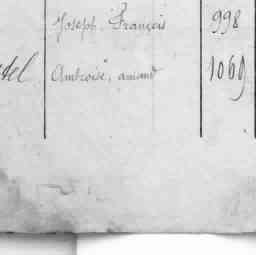 Joseph François 998
Ambroise, amand 1069